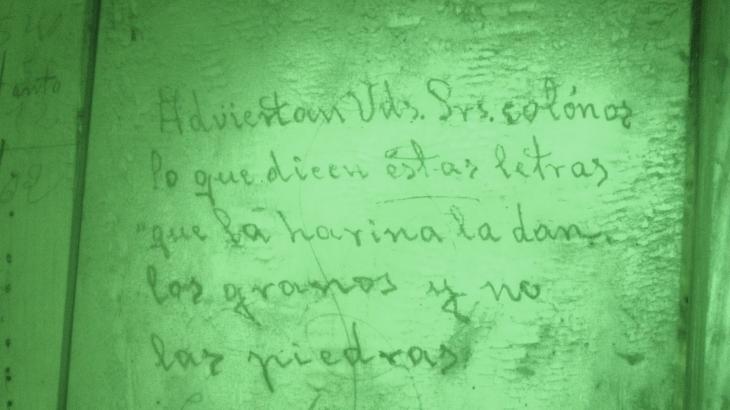 Adviertan Vds. Srs. colónos
lo que dicen éstas létras
"que la harina la dan..
los granos y no
las piedras